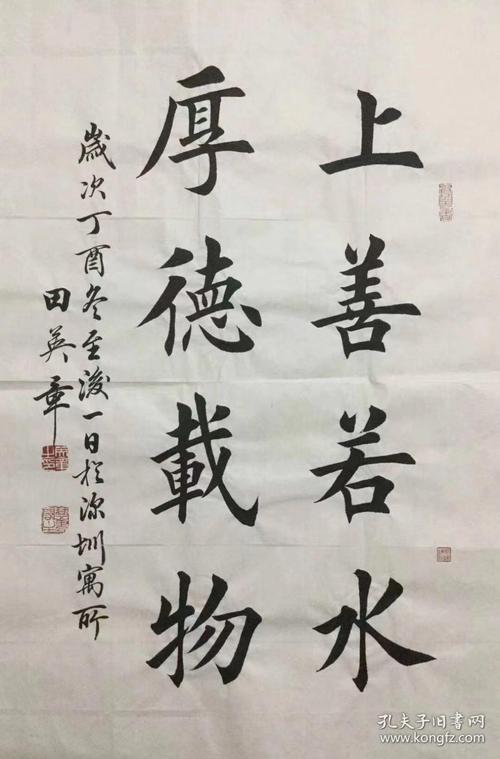 上善若水
厚德載物
歲次丁酉冬至後一日於深圳寓所
田英章
孔夫子旧书网
www.kongfz.com